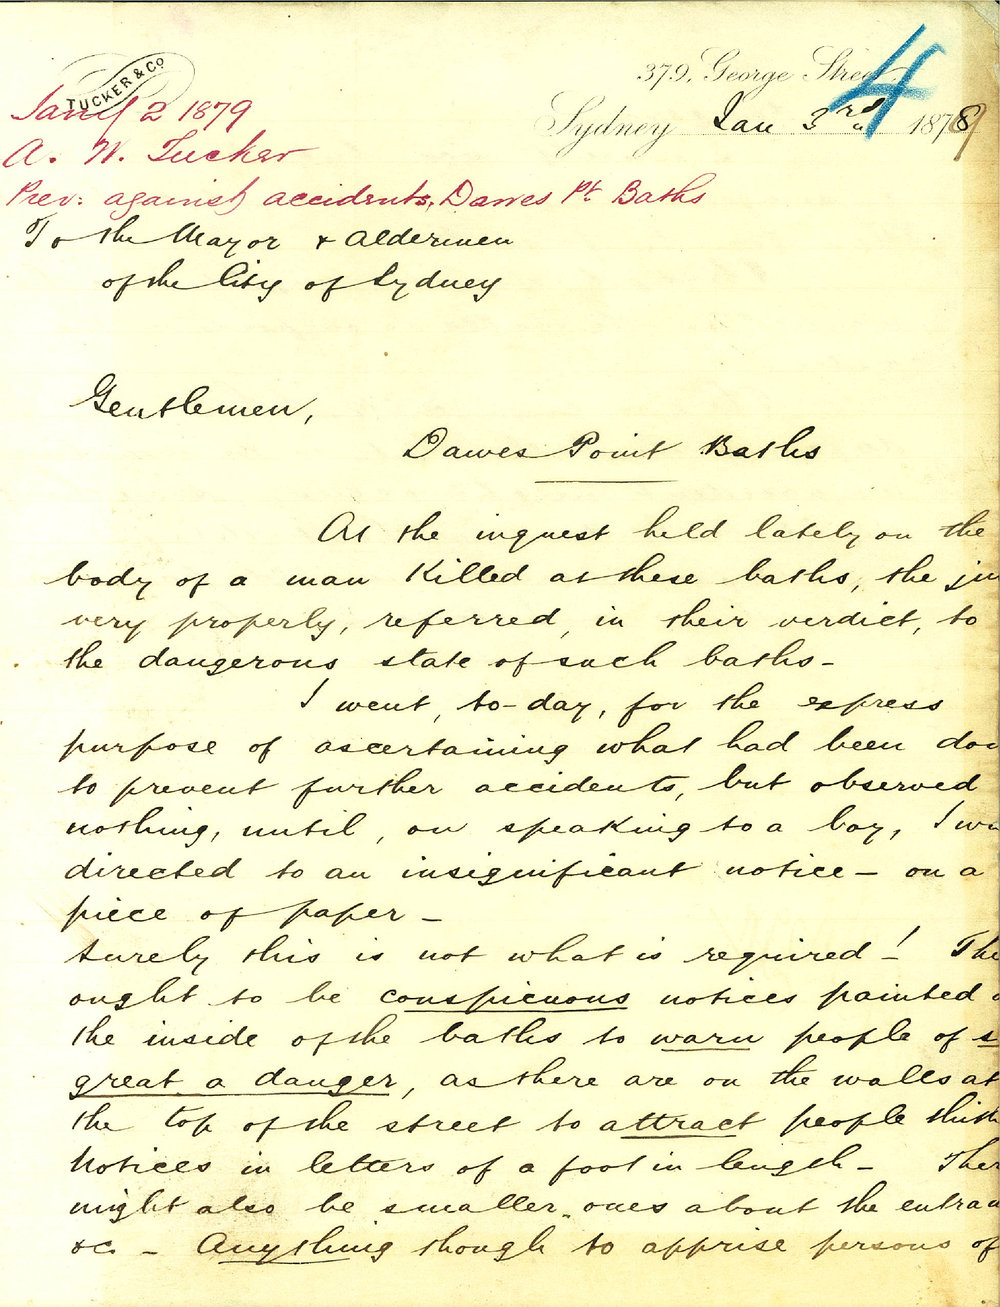 TUCKER & Co
379, George Street
4
Sydney Jan 3rd 1878
Jany 2 1879
A. W. Tucker
Prev: against accidents, Dawes Pt Baths
To the Mayor & Aldermen
of the City of Sydney
Gentlemen,
Dawes Point Baths
At the inquest held lately on the
body of a man killed at these baths, the ju
very properly, referred, in their verdict, to
the dangerous state of such baths-
I went, to-day, for the express
purpose of ascertaining what had been don
to prevent further accidents, but observed
nothing, until, on speaking to a boy, I wa
directed to an insignificant notice - on a
piece of paper -
Surely this is not what is required! The
ought to be conspicuous notices painted o
the inside of the baths to warn people of s
great a danger, as there are on the walls at
the top of the street to attract people thith
Notices in letters of a foot in length - Ther
might also be smaller ones about the entran
&c - Anything though to apprise persons of